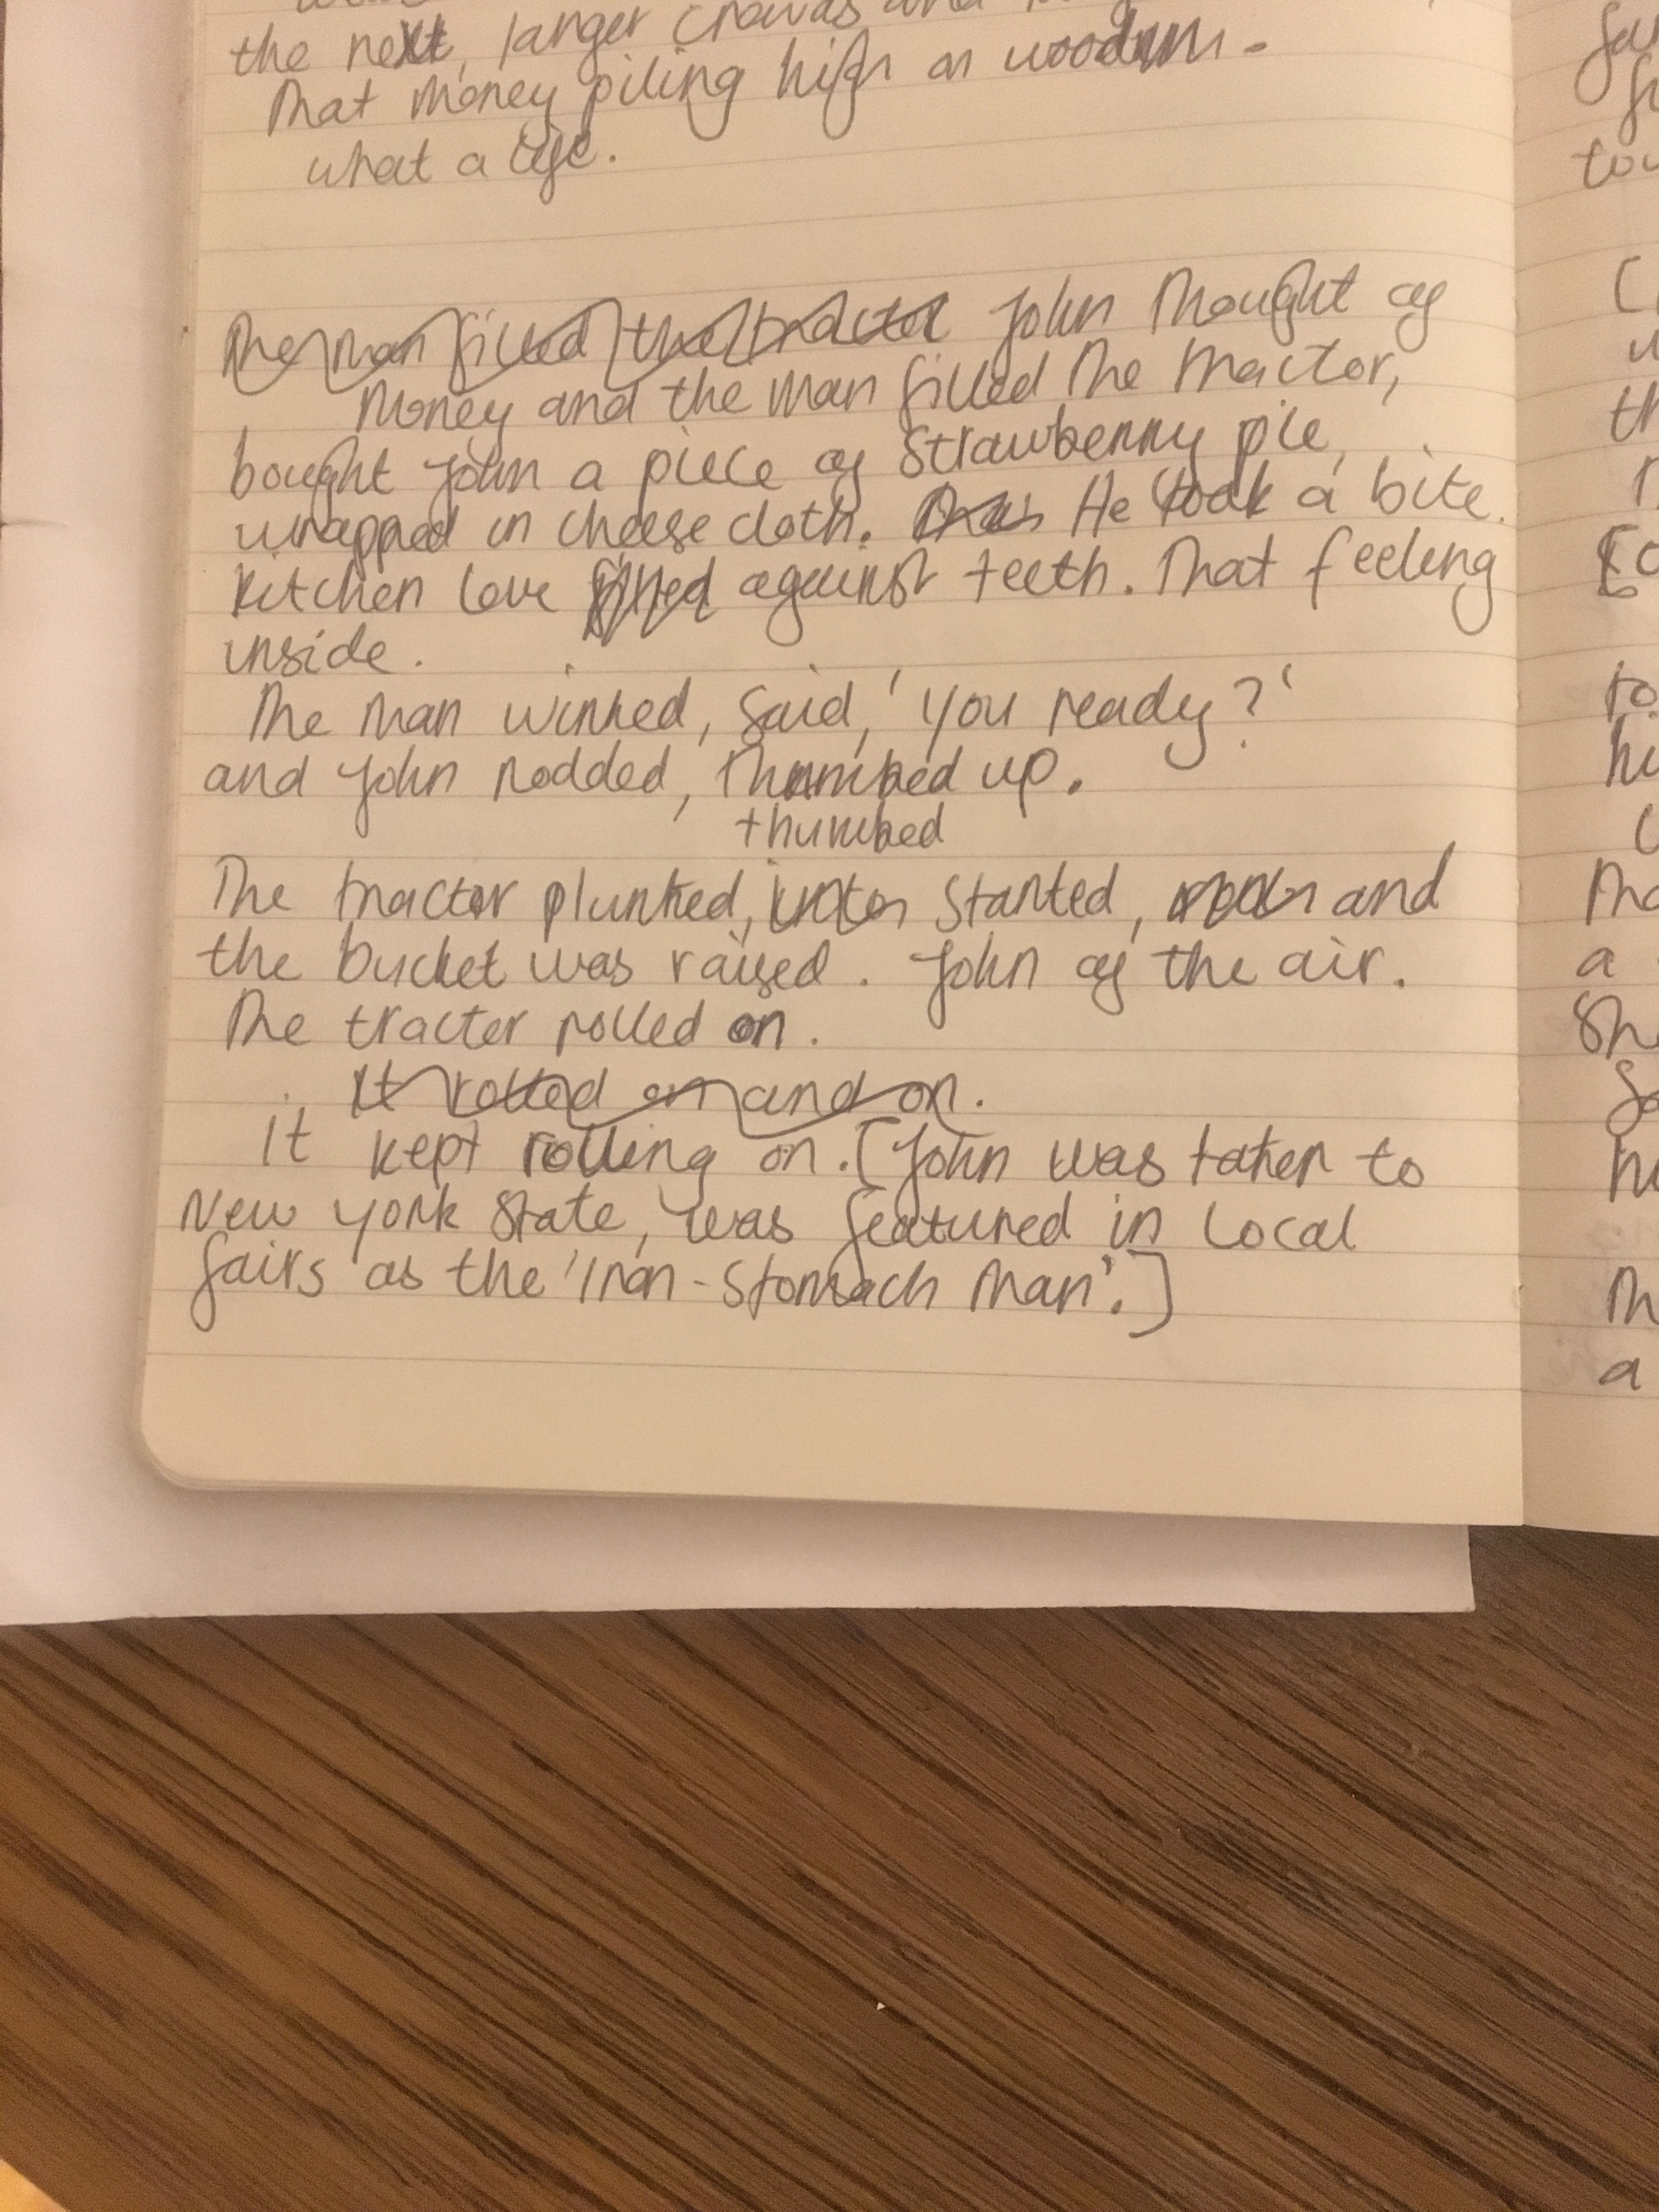 the next, larger crowds and
That money piling high on wooden -
what a life.
The man filled the tractor John thought of
money and the man filled the tractor,
bought John a piece of strawberry pie,
wrapped in cheese cloth. He took a bite.
Kitchen love against teeth. That feeling
inside.
The man winked, said, 'you ready?'
and John nodded, thumbed up.
thumbed
The tractor plunked, started, and
the bucket was raised. John of the air.
The tracter rolled on.
It rolled on and on.
It kept rolling on. [John was taken to
New York State, was featured in local
fairs as the 'Iron-Stomach Man'.]